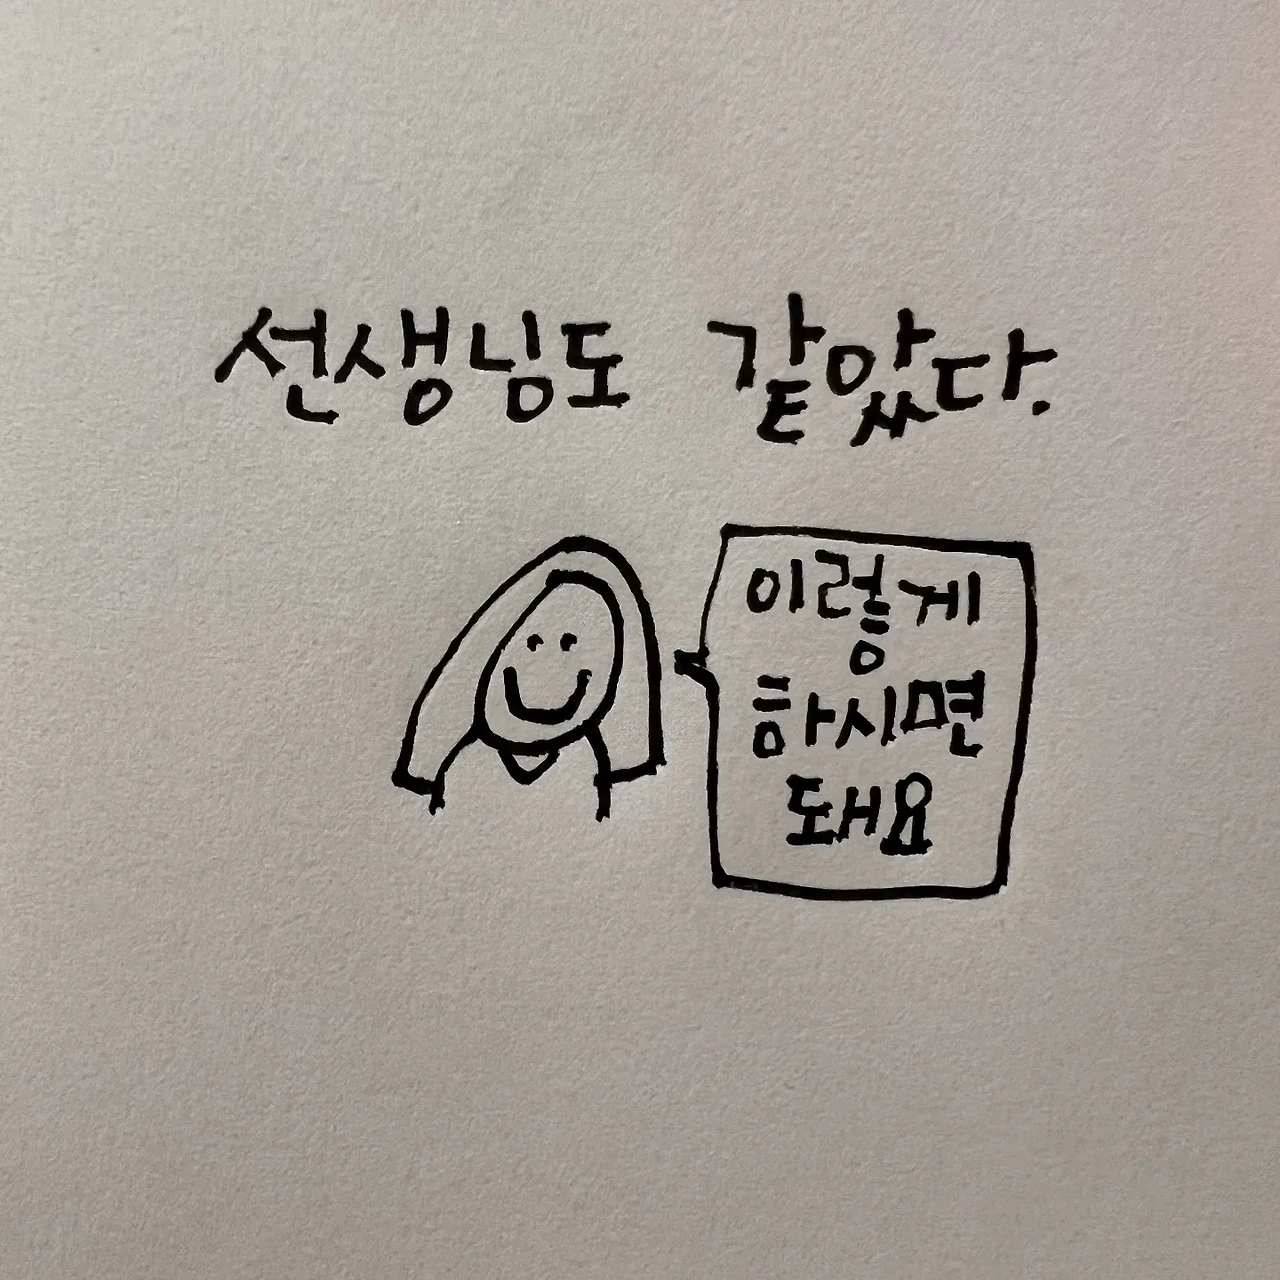 선생님도 같았다.
이렇게
하시면
돼요